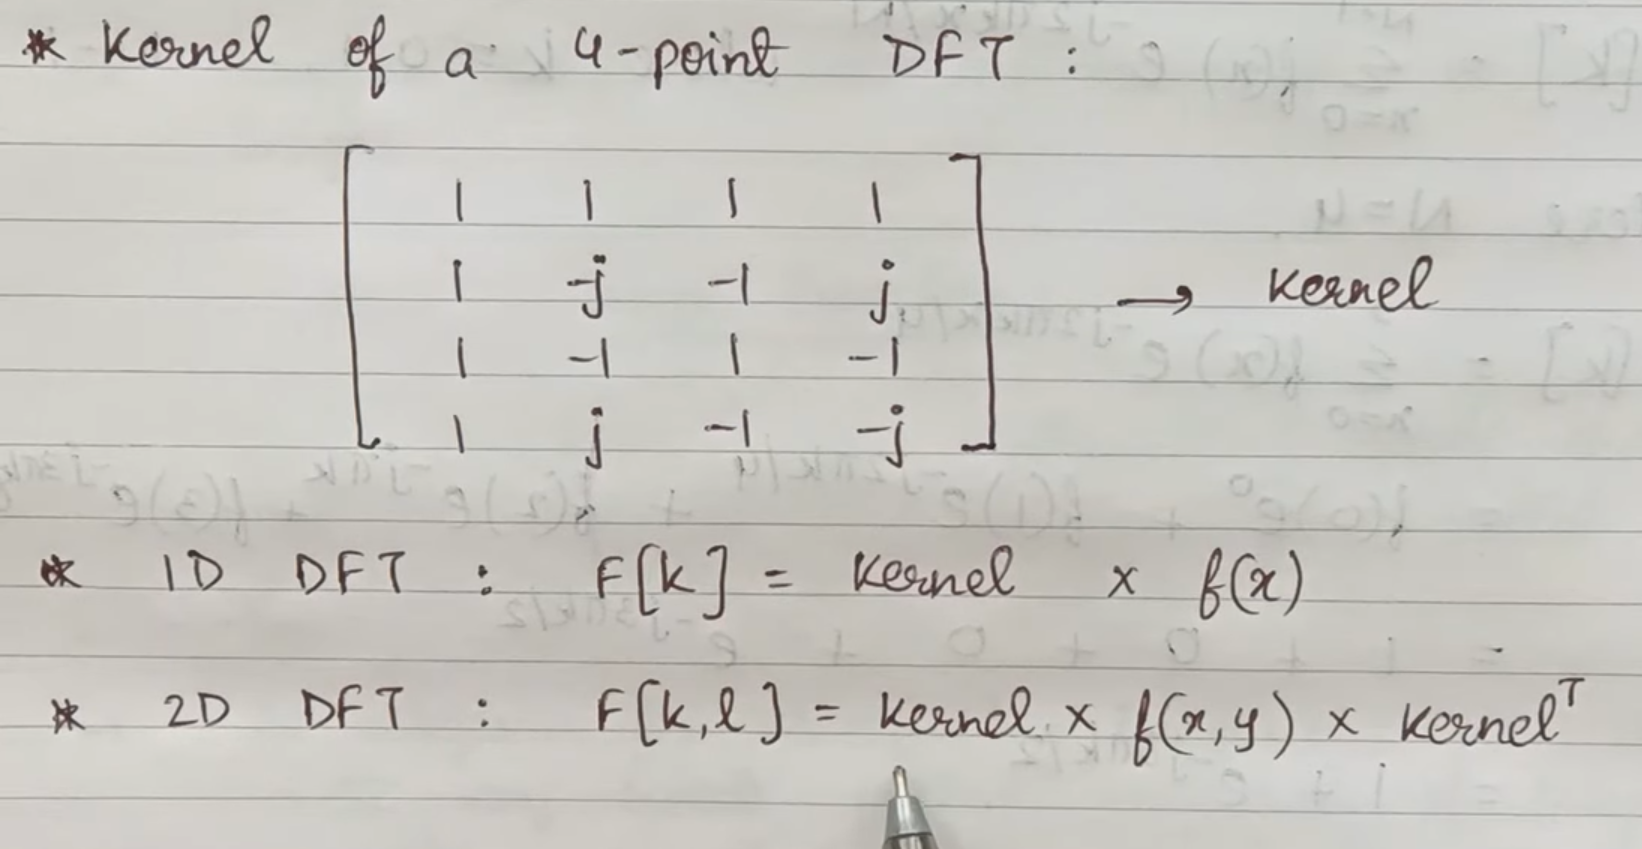 * Kernel of a 4-point DFT :
1 1 1 1
1 -j -1 j → Kernel
1 -1 1 -1
1 j -1 -j
* 1D DFT : F[k] = Kernel x f(x)
* 2D DFT : F[k,l] = Kernel x f(x,y) x Kernelᵀ